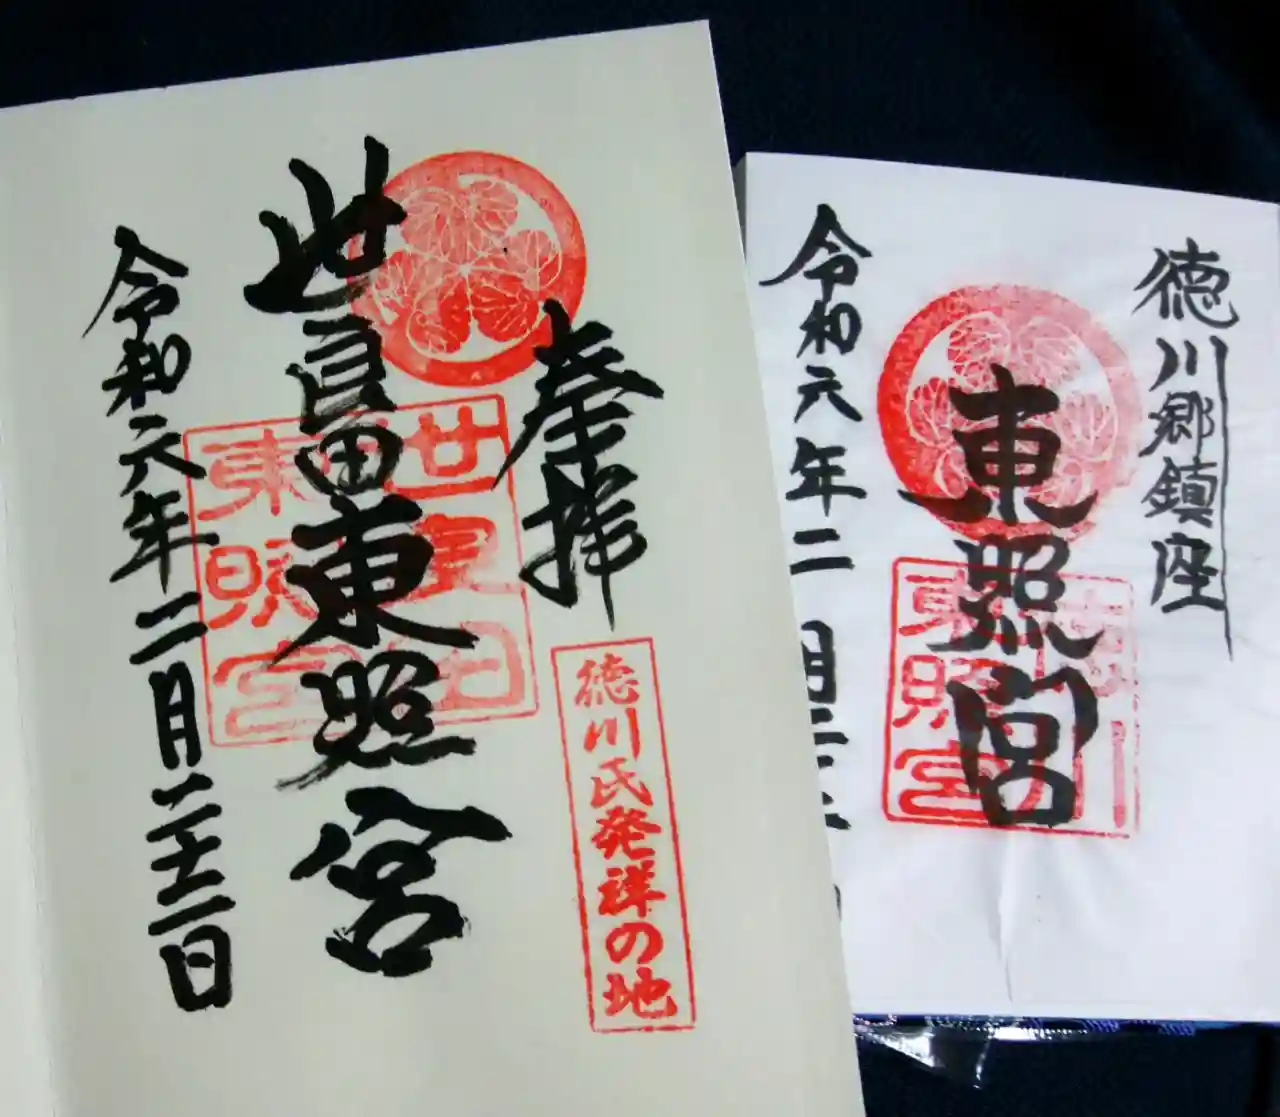 奉拝
徳川氏発祥の地
世良田東照宮
世良田
東照宮
令和六年二月二十三日
徳川郷鎮座
東照宮
東照宮
令和六年二月二十